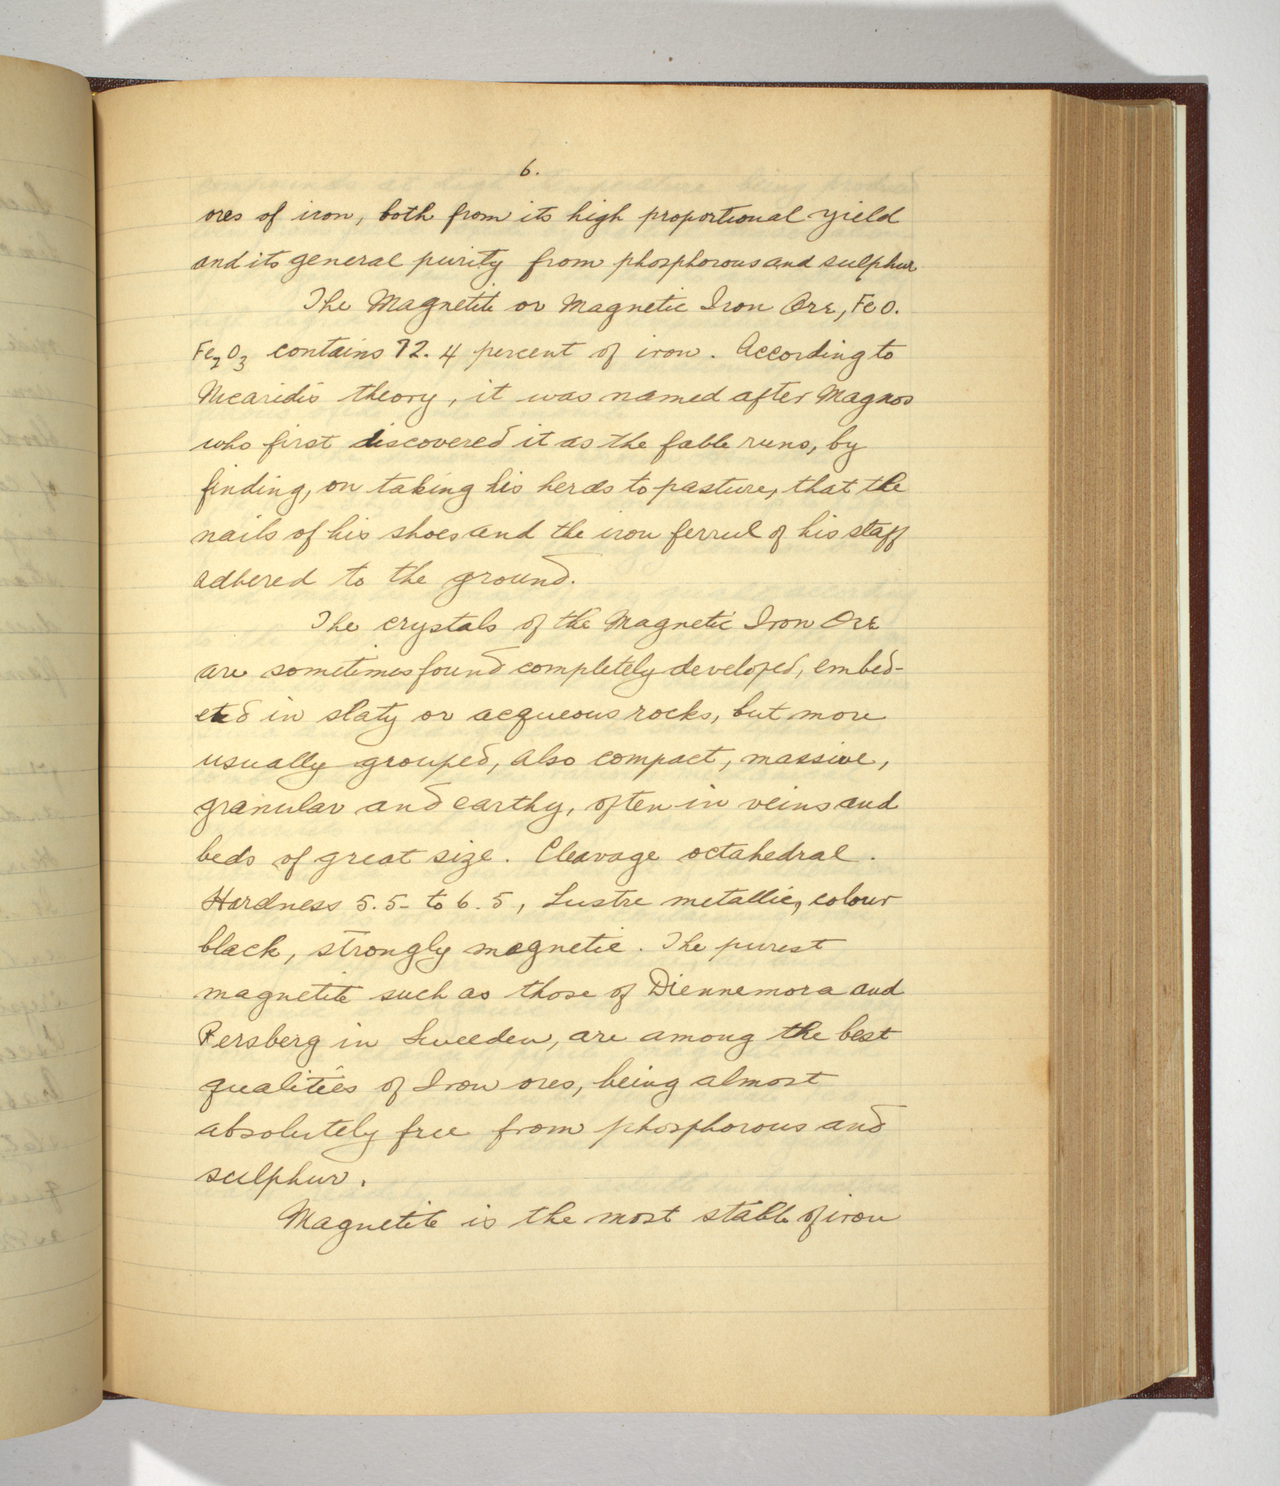 6.
ores of iron, both from its high proportional yield
and its general purity from phosphorous and sulphur
The Magnetite or Magnetic Iron Ore, FeO.
Fe2O3 contains 72.4 percent of iron. According to
theory, it was named after Magnos
who first discovered it as the fable runs, by
finding, on taking his herds to pasture, that the
nails of his shoes and the iron ferrul of his staff
adhered to the ground.
The crystals of the Magnetic Iron Ore
are sometimes found completely developed, embed-
eted in slaty or acqueous rocks, but more
usually grouped, also compact, massive,
granular and earthy, often in veins and
beds of great size. Cleavage octahedral.
Hardness 5.5 to 6.5, Lustre metallic, colour
black, strongly magnetic. The purest
magnetite such as those of Diennemora and
Persberg in Sweeden, are among the best
qualities of Iron ores, being almost
absolutely free from phosphorous and
sulphur.
Magnetite is the most stable of iron